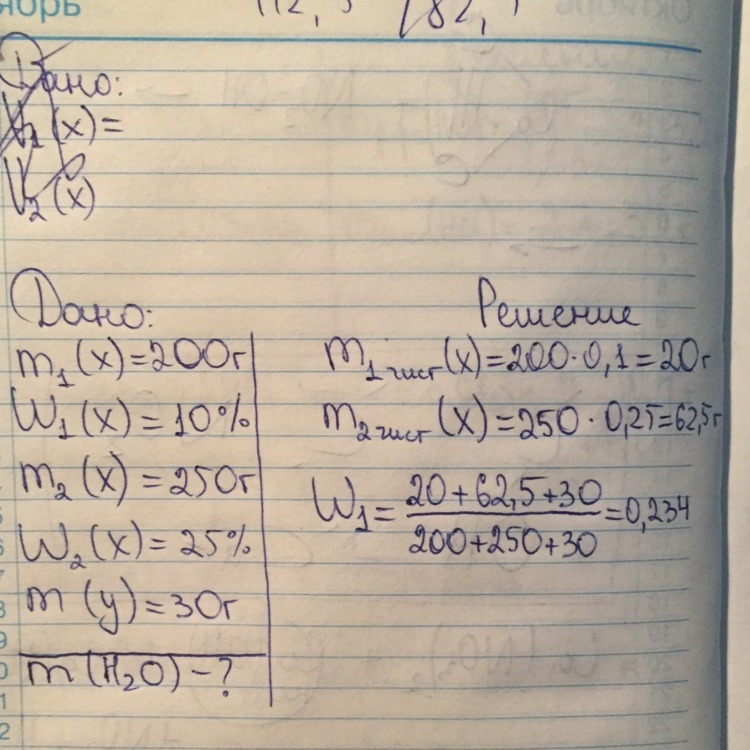 Дано:
V₁(x)=
V₂(x)
Дано:
m₁(x)=200г
W₁(x)=10%
m₂(x)=250г
W₂(x)=25%
m(y)=30г
m(H₂O)-?
Решение
m₁чист(x)=200·0,1=20г
m₂чист(x)=250·0,25=62,5г
W₁=(20+62,5+30)/(200+250+30)=0,234